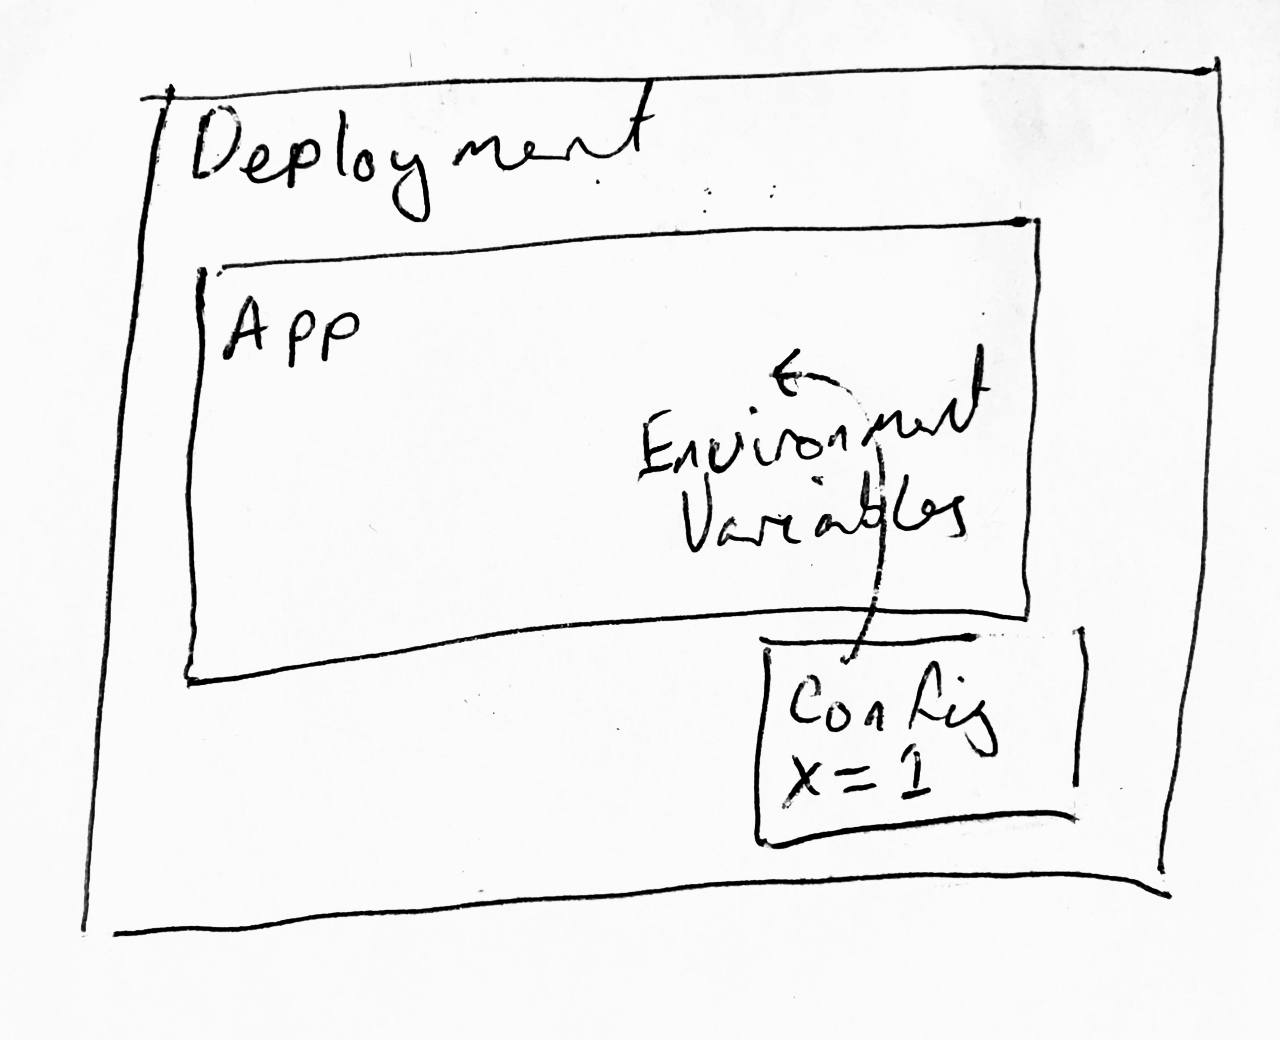 Deployment
App
Environment
Variables
Config
x = 1